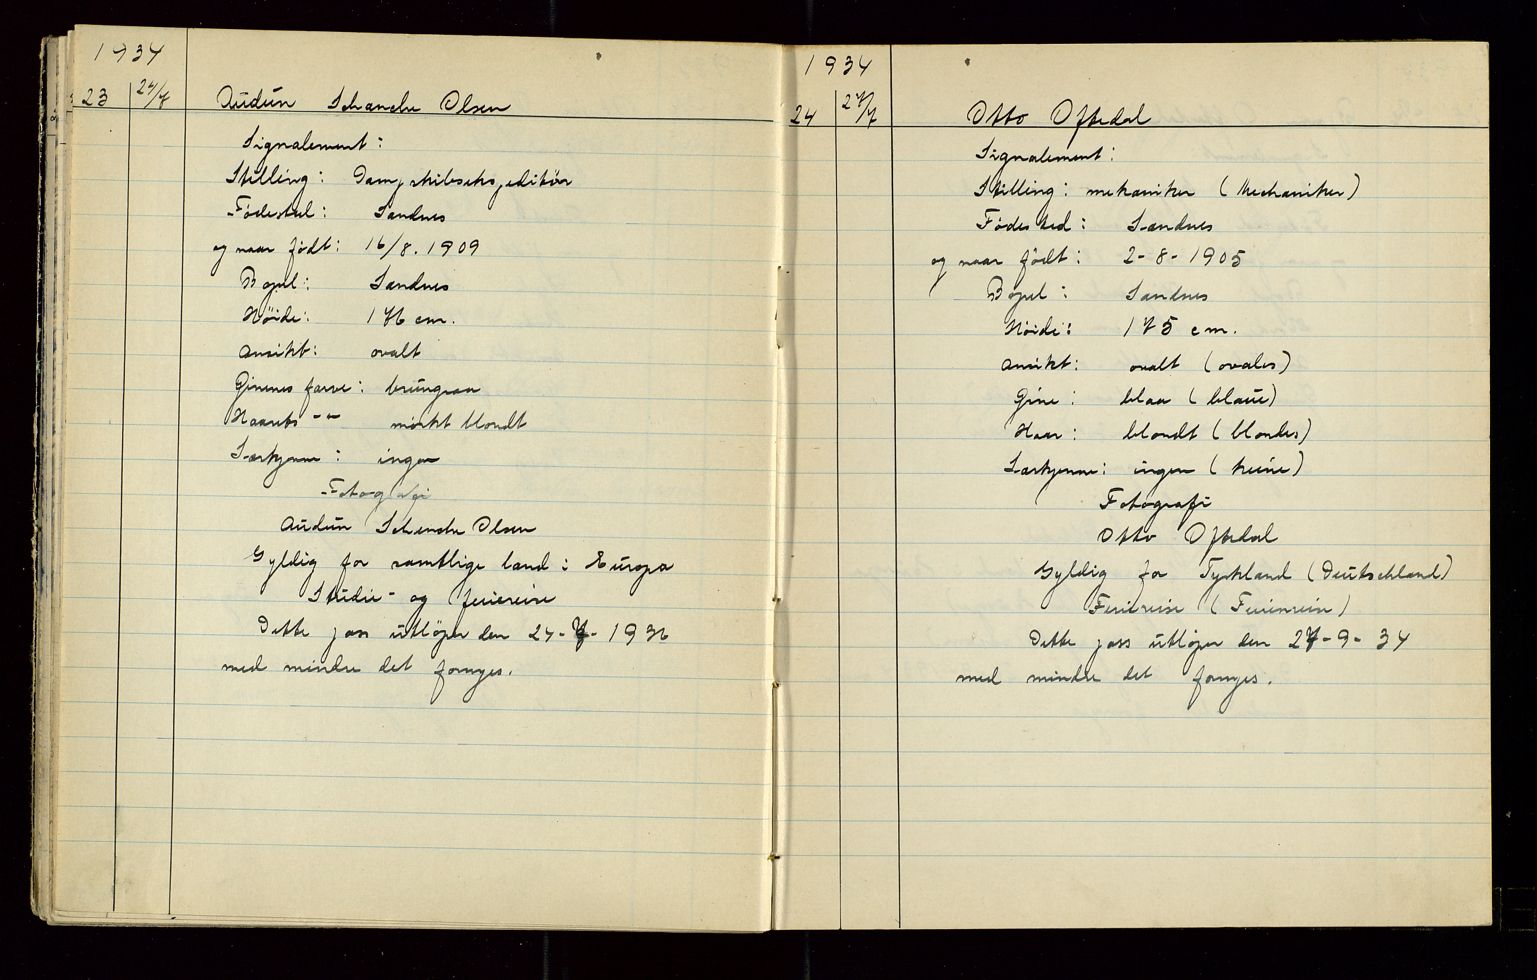 1934
23 24/7 Audun Schanche Olsen
Signalement:
Stilling: Dampskibsekspeditør
Fødested: Sandnes
og naar født: 16/8. 1909
Bopel: Sandnes
Høide: 176 cm.
Ansikt: ovalt
Øinenes farve: brungraa
Haarets -"- mørkt blondt
Særkjenne: ingen
Fotografi
Audun Schanche Olsen
Gyldig for samtlige land i Europa
Studie- og feriereise
Dette pass utløper den 24-7-1936
med mindre det fornyes.
1934
24 27/7 Otto Oftedal
Signalement:
Stilling: mekaniker (Mechaniker)
Fødested: Sandnes
og naar født: 2-8-1905
Bopel: Sandnes
Høide: 175 cm.
Ansikt: ovalt (ovales)
Øine: blaa (blaue)
Haar: blondt (blondes)
Særkjenne: ingen (keine)
Fotografi
Otto Oftedal
Gyldig for Tyskland (Deutschland)
Feriereise (Ferienreise)
Dette pass utløper den 27-9-34
med mindre det fornyes.